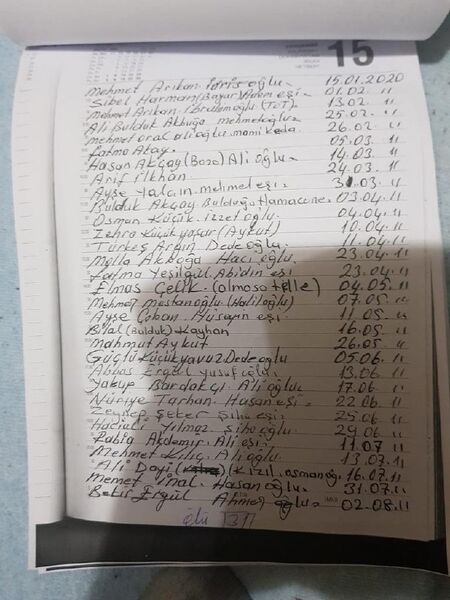 15
Mehmet Arıkan İdris oğlu 15.01.2020
Sibel Harman (Boyar Harem eşi 01.02. 11
Mehmet Arıkan İbrahimoğlu (TOT) 13.02 11
Ali Bulduk Akboğa mehmetoğlu 25.02. 11
mehmet oral alioğlu mami keda. 26.02 11
Fatma Atay. 05.03 11
Hasan Akçay (Bozo) Ali oğlu 14.03 11
Arif ilkhan 24.03. 11
Ayşe Yalçın mehmet eşi 31.03. 11
Bulduk Akçay Bulduğo Hamacune 03.04 11
Osman Küçük izzet oğlu 04.04. 11
Zehra Küçükyavuz (Aykut) 10.04 11
Türkeş Argın Dede oğlu 11.04 11
Molla Akboğa Hacı oğlu 23.04 11
Fatma Yeşilgül Abidin eşi 23.04 11
Elmas Çelik (olmoso telle) 04.05 11
Mehmet Mestanoğlu (Haliloğlu) 07.05 11
Ayşe Çoban Hüseyin eşi 11.05 11
Bilal (Bulduk) Kayhan 16.05 11
Mahmut Aykut 26.05 11
Güçlü Küçükyavuz Dede oğlu 05.06 11
Abbas Ergül yusuf oğlu 13.06 11
Yakup Bardakçı Ali oğlu 17.06 11
Nuriye Tarhan Hasan eşi 22.06 11
Zeynep Şeker Şiho eşi 25.06 11
Hacıali Yılmaz Şiho oğlu 29.06 11
Rabia Akdemir Ali eşi 11.07 11
Mehmet Kılıç Ali oğlu 13.07 11
Ali Dayi (Kızıl osmanoğ. 16.07 11
Memet inal Hasan oğlu 31.07. 11
Bekir Ergül Ahmet oğlu 02.08. 11
ölü 31